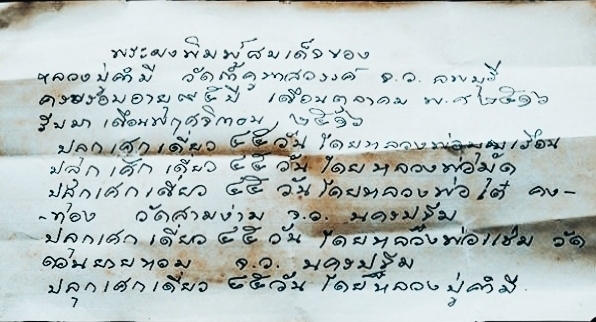 พระผงพิมพ์สมเด็จของ
หลวงปู่คำมี วัดถ้ำคูหาสวรรค์ จ.ว. ลพบุรี
ครบรอบอายุ ๙๕ ปี เดือนตุลาคม พ.ศ ๒๕๑๖
รับมา เดือนพฤศจิกายน, ๒๕๑๖
ปลุกเศกเดี่ยว ๔๕ วัน โดยหลวงพ่อ
ปลุกเศกเดี่ยว ๔๕ วัน โดยหลวงพ่อมัด
ปลุกเศกเดี่ยว ๔๕ วัน โดยหลวงพ่อ เต๋ คง-
-ทอง วัดสามง่าม จ.ว. นครปฐม
ปลุกเศกเดี่ยว ๔๕ วัน โดยหลวงพ่อแช่ม วัด
ดอนยายหอม จ.ว. นครปฐม
ปลุกเศกเดี่ยว ๔๕ วัน โดยหลวงปู่คำมี.